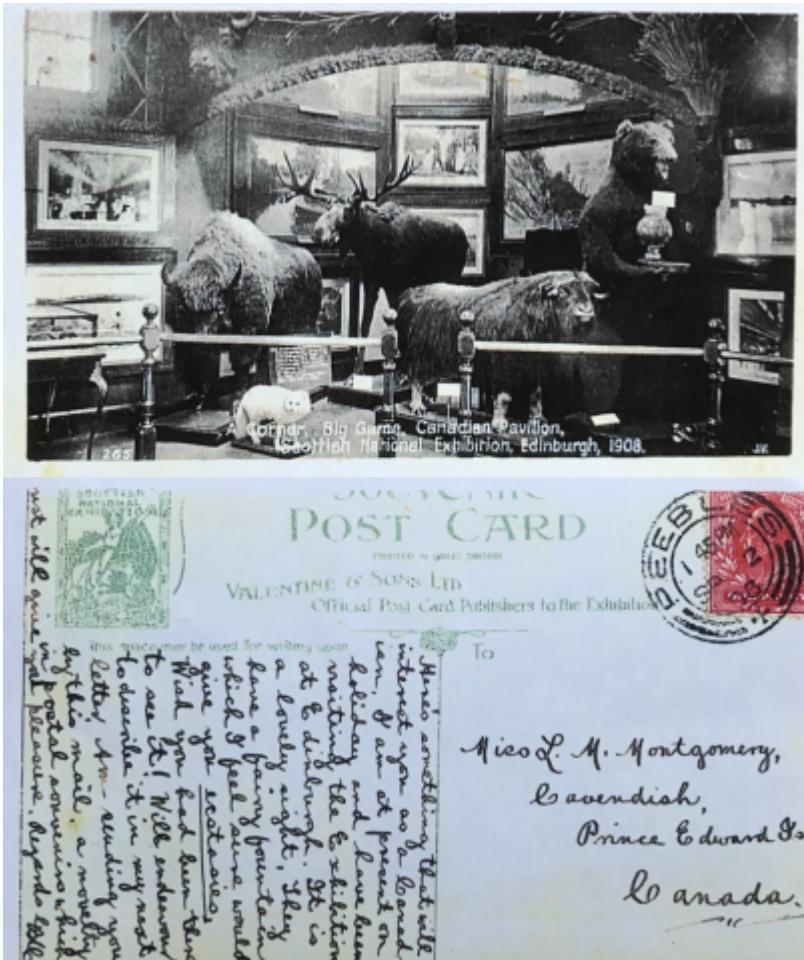 A Corner, Big Game, Canadian Pavilion,
Scottish National Exhibition, Edinburgh, 1908.
265
JV
SCOTTISH
NATIONAL
EXHIBITION
SOUVENIR
POST CARD
PRINTED IN GREAT BRITAIN
VALENTINE & SONS LTD
Official Post Card Publishers to the Exhibition
PEEBLES
1 45PM
2
08
This space may be used for writing upon
To
Here's something that will
interest you as a Canad-
ian. I am at present on
holiday and have been
visiting the Exhibition
at Edinburgh. It is
a lovely sight. They
have a fairy fountain
which I feel sure would
give you ecstasies.
Wish you had been there
to see it! Will endeavour
to describe it in my next
letter. Am sending you
by this mail, a novelty
in postal souvenirs which
will give you pleasure. Regards
Miss L. M. Montgomery,
Cavendish,
Prince Edward Is
Canada.